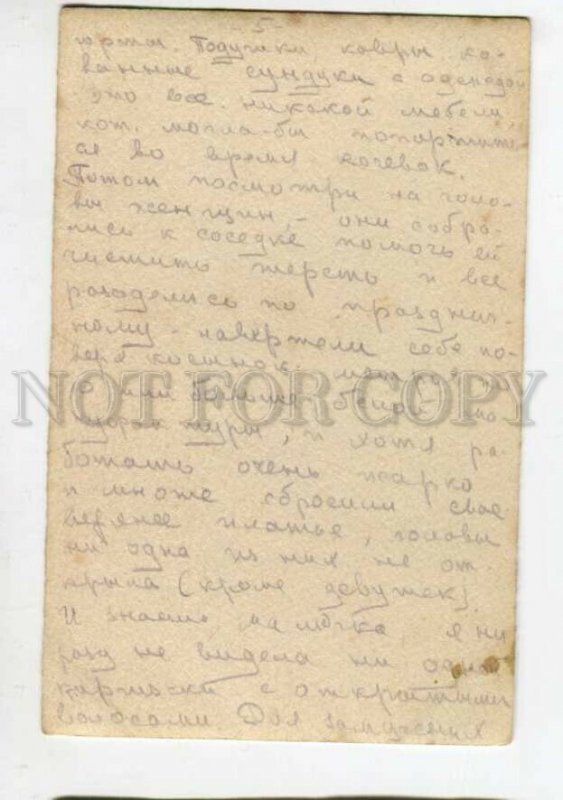 -5-
юрты. Подушки ковры ко-
ванные сундуки с одеждой
это все. никакой мебели,
кот. могла-бы попортить
ся во время кочевок.
Потом посмотри на голо-
вы женщин, – они собра-
лись к соседке помочь ей
чистить шерсть и все
разоделись по празднич-
ному – навертели себе по-
верх косынок
больше белой
туры, и хотя ра-
ботать очень жарко
и многие сбросили свое
верхнее платье, головы
ни одна из них не от
крыла (кроме девушек).
И знаешь мамочка я ни
разу не видела ни одной
киргизки с открытыми
волосами. Для замужних
NOT FOR COPY